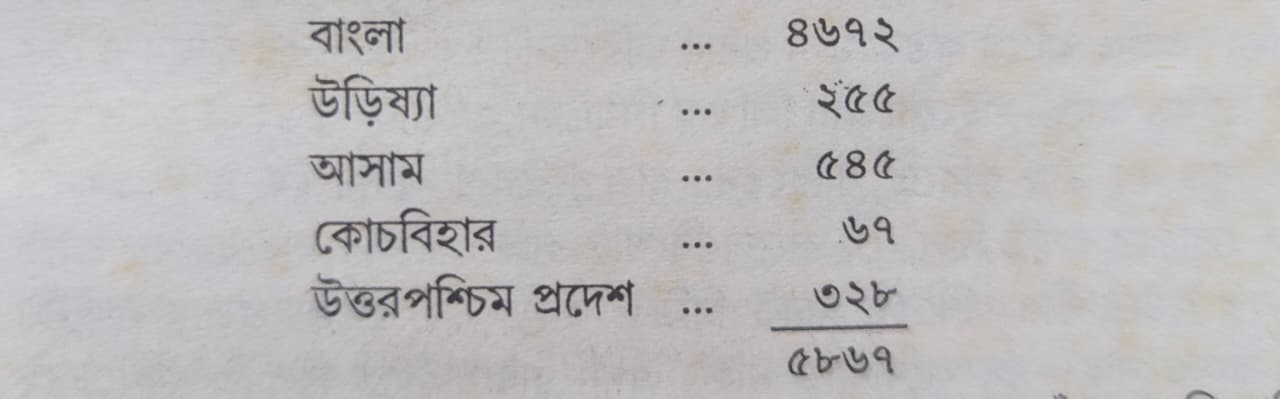 বাংলা ... ৪৬৭২
উড়িষ্যা ... ২৫৫
আসাম ... ৫৪৫
কোচবিহার ... ৬৭
উত্তরপশ্চিম প্রদেশ ... ৩২৮
৫৮৬৭